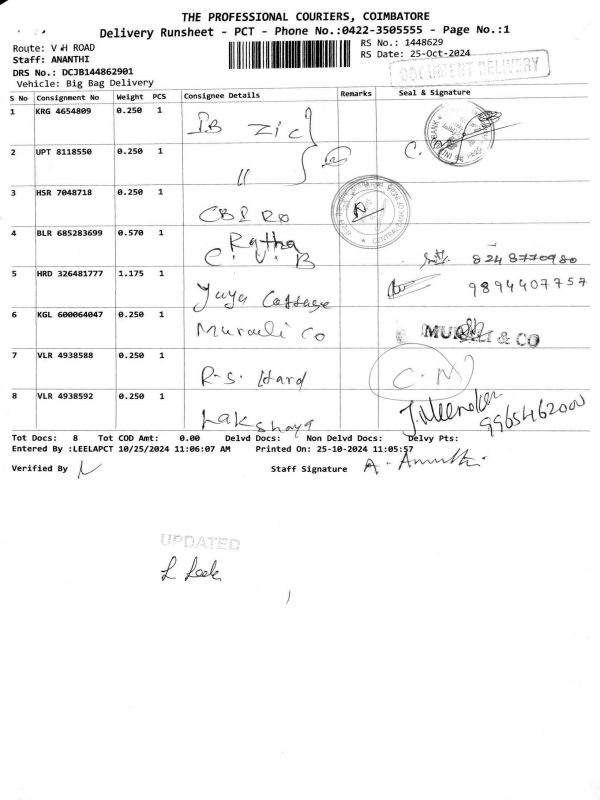 THE PROFESSIONAL COURIERS, COIMBATORE
Delivery Runsheet - PCT - Phone No.:0422-3505555 - Page No.:1
Route: V H ROAD
RS No.: 1448629
Staff: ANANTHI
RS Date: 25-Oct-2024
DRS No.: DCJB144862901
DOCUMENT DELIVERY
Vehicle: Big Bag Delivery
S No Consignment No Weight PCS Consignee Details Remarks Seal & Signature
1 KRG 4654809 0.250 1 I.B ZIC
2 UPT 8118550 0.250 1 "
3 HSR 7048718 0.250 1 CBI RO
4 BLR 685283699 0.570 1 Ratha C. V. B 8248770980
5 HRD 326481777 1.175 1 Jaya Cottage 9894407757
6 KGL 600064047 0.250 1 Murauli Co & CO
7 VLR 4938588 0.250 1 R.S. Hard C.M
8 VLR 4938592 0.250 1 Lakshaya 9965462000
Tot Docs: 8 Tot COD Amt: 0.00 Delvd Docs: Non Delvd Docs: Delvy Pts:
Entered By :LEELAPCT 10/25/2024 11:06:07 AM Printed On: 25-10-2024 11:05:57
Verified By Staff Signature
UPDATED